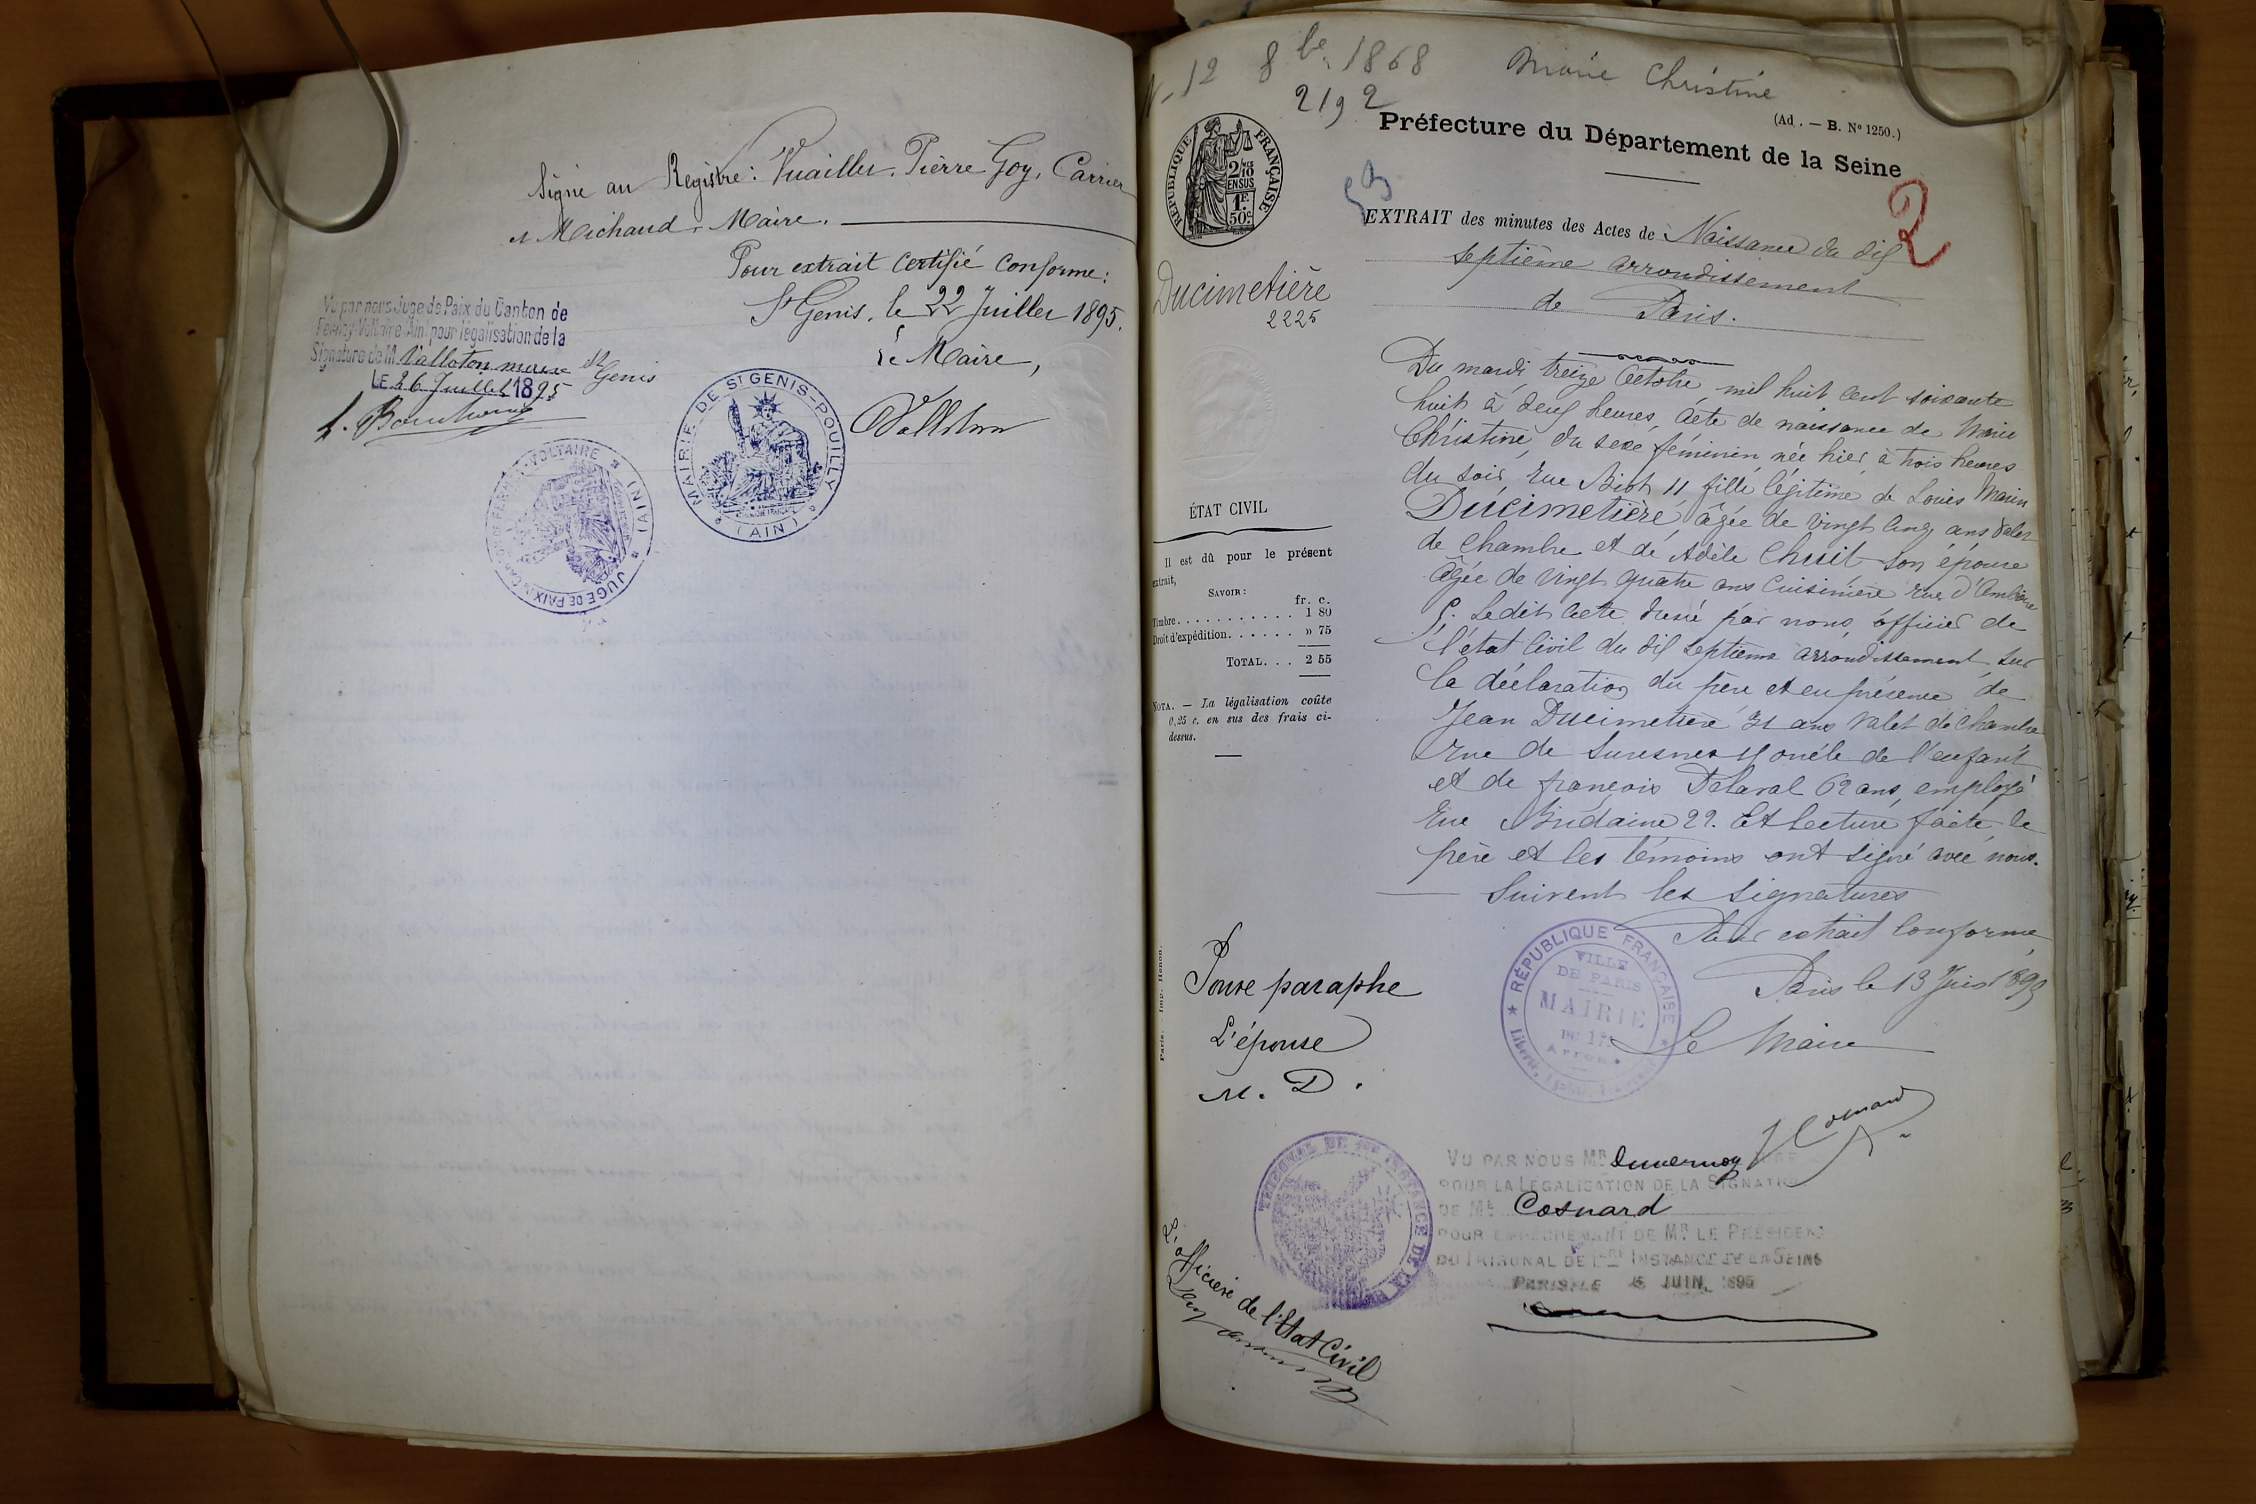 Signé au Registre: Vuaillet, Pierre Goy, Carrier
et Michaud, Maire.
Pour extrait certifié conforme:
St Genis, le 22 Juillet 1895.
Le Maire,
Vu par nous Juge de Paix du Canton de
Ferney-Voltaire (Ain) pour légalisation de la
Signature de M. Valloton maire St Genis
LE 26 Juillet 1895
MAIRIE DE ST GENIS-POUILLY
(AIN)
JUGE DE PAIX
(AIN)
N- 12 8bre 1868 Marie Christine
2192
(Ad. — B. N° 1250.)
Préfecture du Département de la Seine
RÉPUBLIQUE FRANÇAISE
2/10 EN SUS
1F. 50c.
2
EXTRAIT des minutes des Actes de Naissance du dix
septième arrondissement
de Paris.
Ducimetière
2225
Du mardi treize Octobre mil huit cent soixante
huit à deux heures, Acte de naissance de Marie
Christine, du sexe féminin née hier à trois heures
du soir, rue Biot 11, fille légitime de Louis Marin
Ducimetière, âgée de vingt cinq ans valet
de chambre et de Adèle Chuit son épouse
âgée de vingt quatre ans cuisinière rue d'Amboise
5. Ledit acte dressé par nous, officier de
l'état civil du dix septième arrondissement sur
la déclaration du père et en présence de
Jean Ducimetière 31 ans valet de chambre
rue de Suresnes 11 oncle de l'enfant
et de françois Delaval 62 ans, employé
rue Bridaine 22. Et lecture faite, le
père et les témoins ont signé avec nous.
Suivent les signatures
Pour extrait conforme
Paris le 13 Juin 1895
Le Maire
ÉTAT CIVIL
Il est dû pour le présent
extrait,
SAVOIR:
fr. c.
Timbre. . . . . . . . . . . . 1 80
Droit d'expédition. . . . . . » 75
TOTAL. . . 2 55
NOTA. — La légalisation coûte
0,25 c. en sus des frais ci-
dessus.
Paris. Imp. Hénon.
Pour paraphe
L'épouse
M. D.
RÉPUBLIQUE FRANÇAISE
VILLE
DE PARIS
MAIRIE
DU 17e
Arron.
Cosnard
VU PAR NOUS MR Duvernoy
POUR LA LÉGALISATION DE LA SIGNATURE
DE MR Cosnard
POUR EMPÊCHEMENT DE MR LE PRÉSIDENT
DU TRIBUNAL DE 1ÈRE INSTANCE DE LA SEINE
PARIS LE JUIN 1895
TRIBUNAL DE 1ère INSTANCE DE LA
L'officier de l'Etat Civil